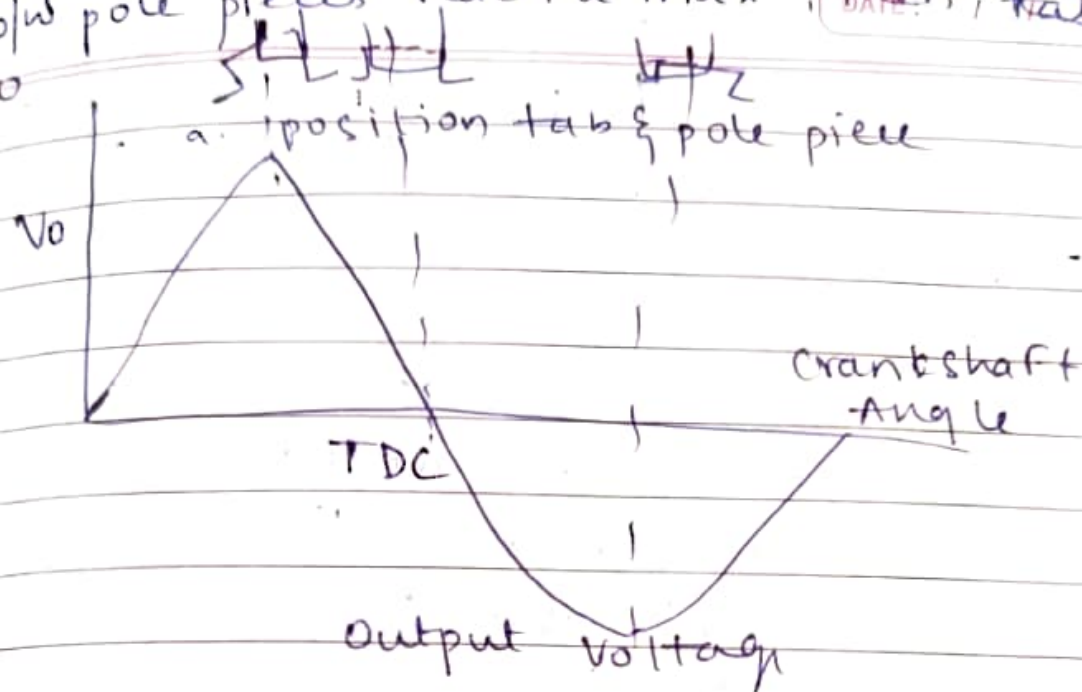 b/w pole pieces
DATE:
a. position tab & pole piece
Vo
Crankshaft
Angle
TDC
Output Voltage